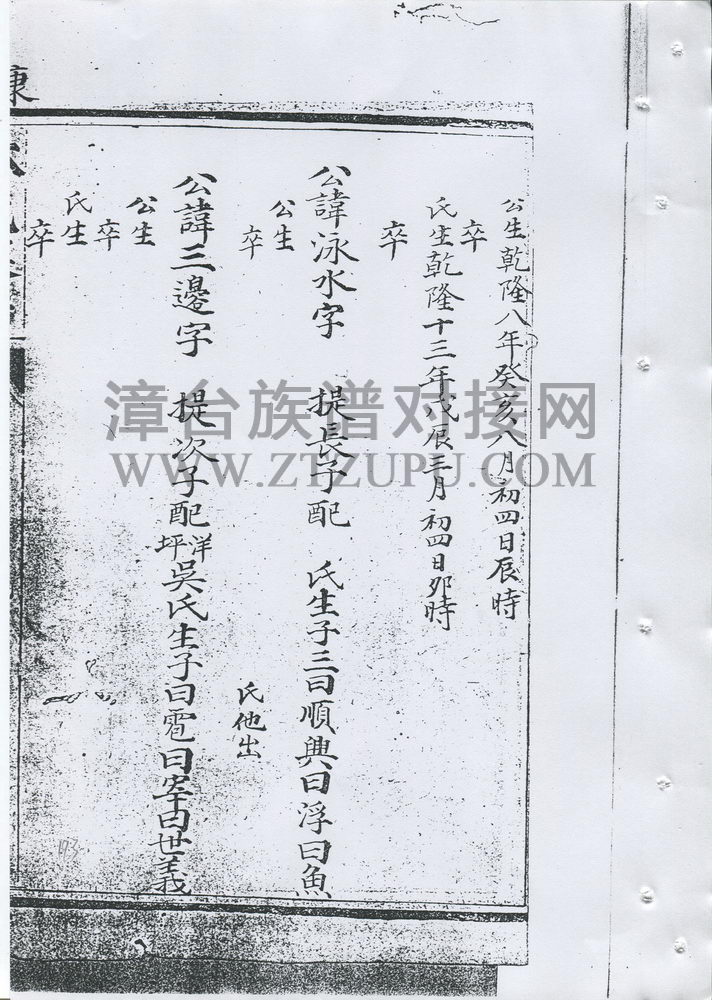 公生乾隆八年癸亥八月初四日辰時
卒
氏生乾隆十三年戊辰三月初四日卯時
卒
公諱泳水字 提長子配 氏生子三曰順興曰浮曰魚
公生
卒 氏他出
公諱三邊字 提次子配洋坪吳氏生子曰雹曰 曰世義
公生
卒
氏生
卒
康
漳台族谱对接网
WWW.ZTZUPU.COM